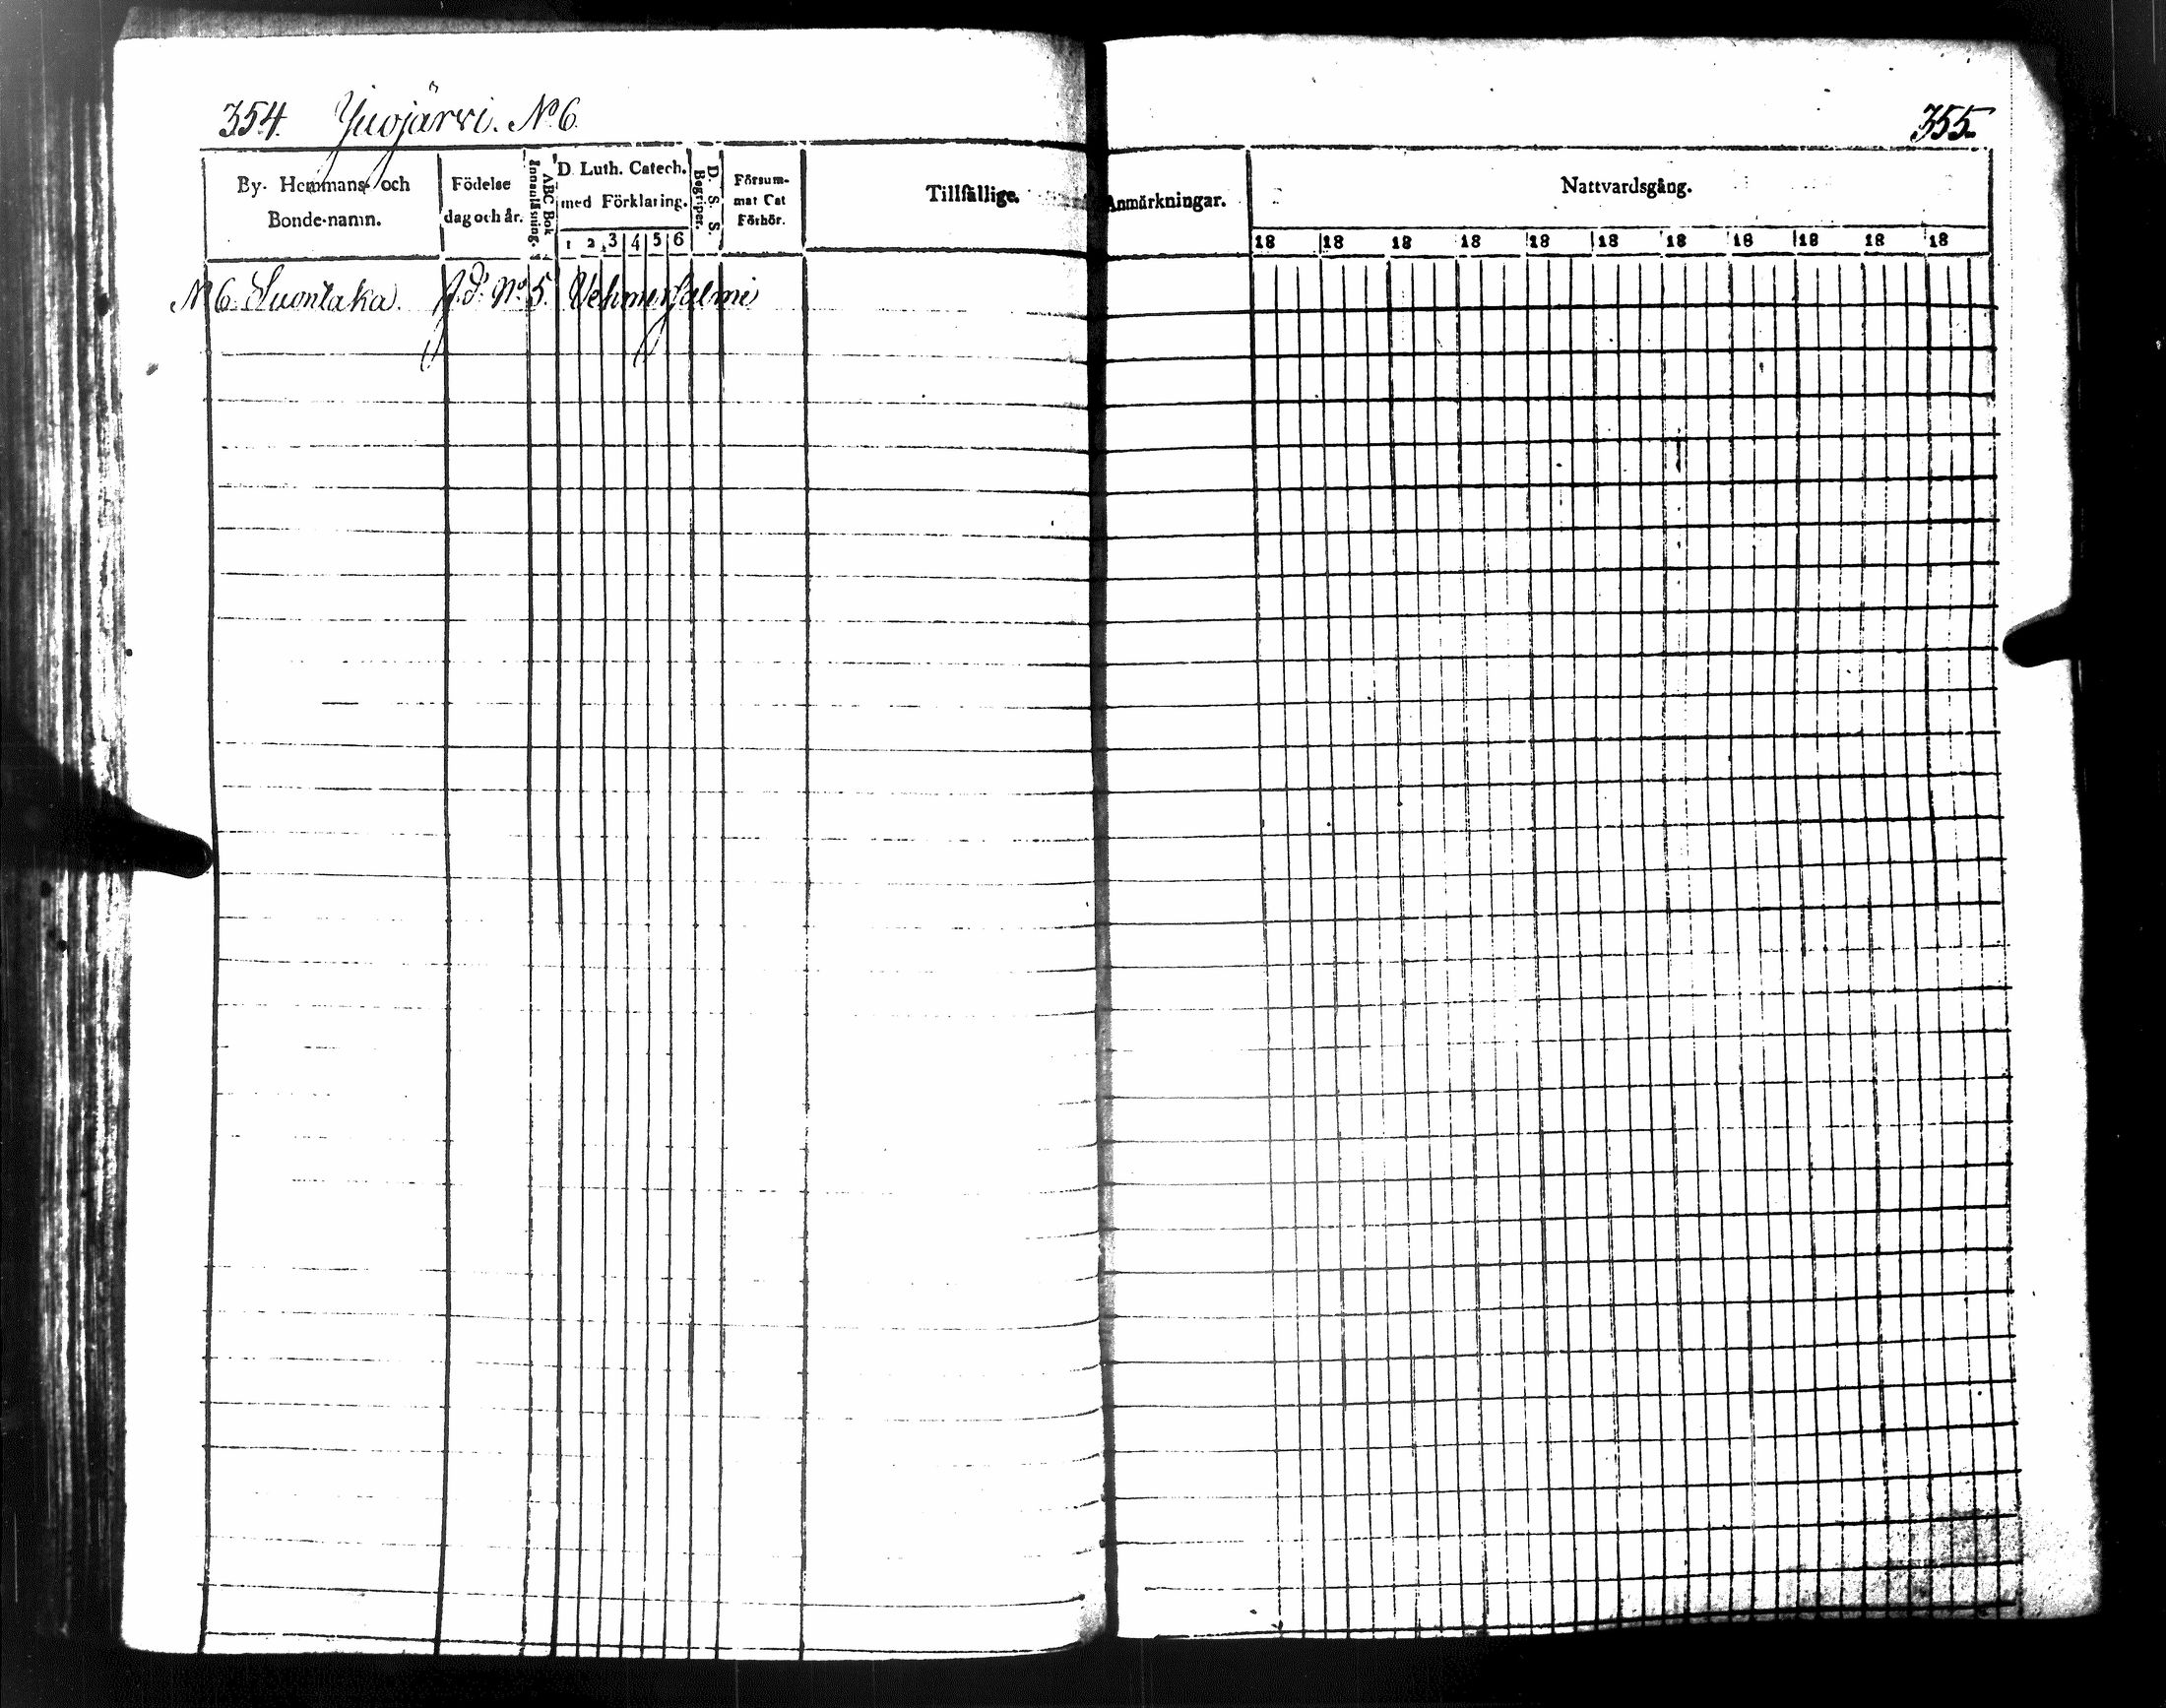 354. Juojärvi. No 6.
355.
By- Hemmans- och Bonde-namn.
Födelse dag och år.
ABC Bok Innanläsning.
D. Luth. Catech. med Förklaring.
1 2 3 4 5 6
D. S. S. Begriper.
Försummat Cat Förhör.
Tillfällige Anmärkningar.
Nattvardsgång.
18 18 18 18 18 18 18 18 18 18 18
No 6. Luontaka. No 5. Vehmersalmi